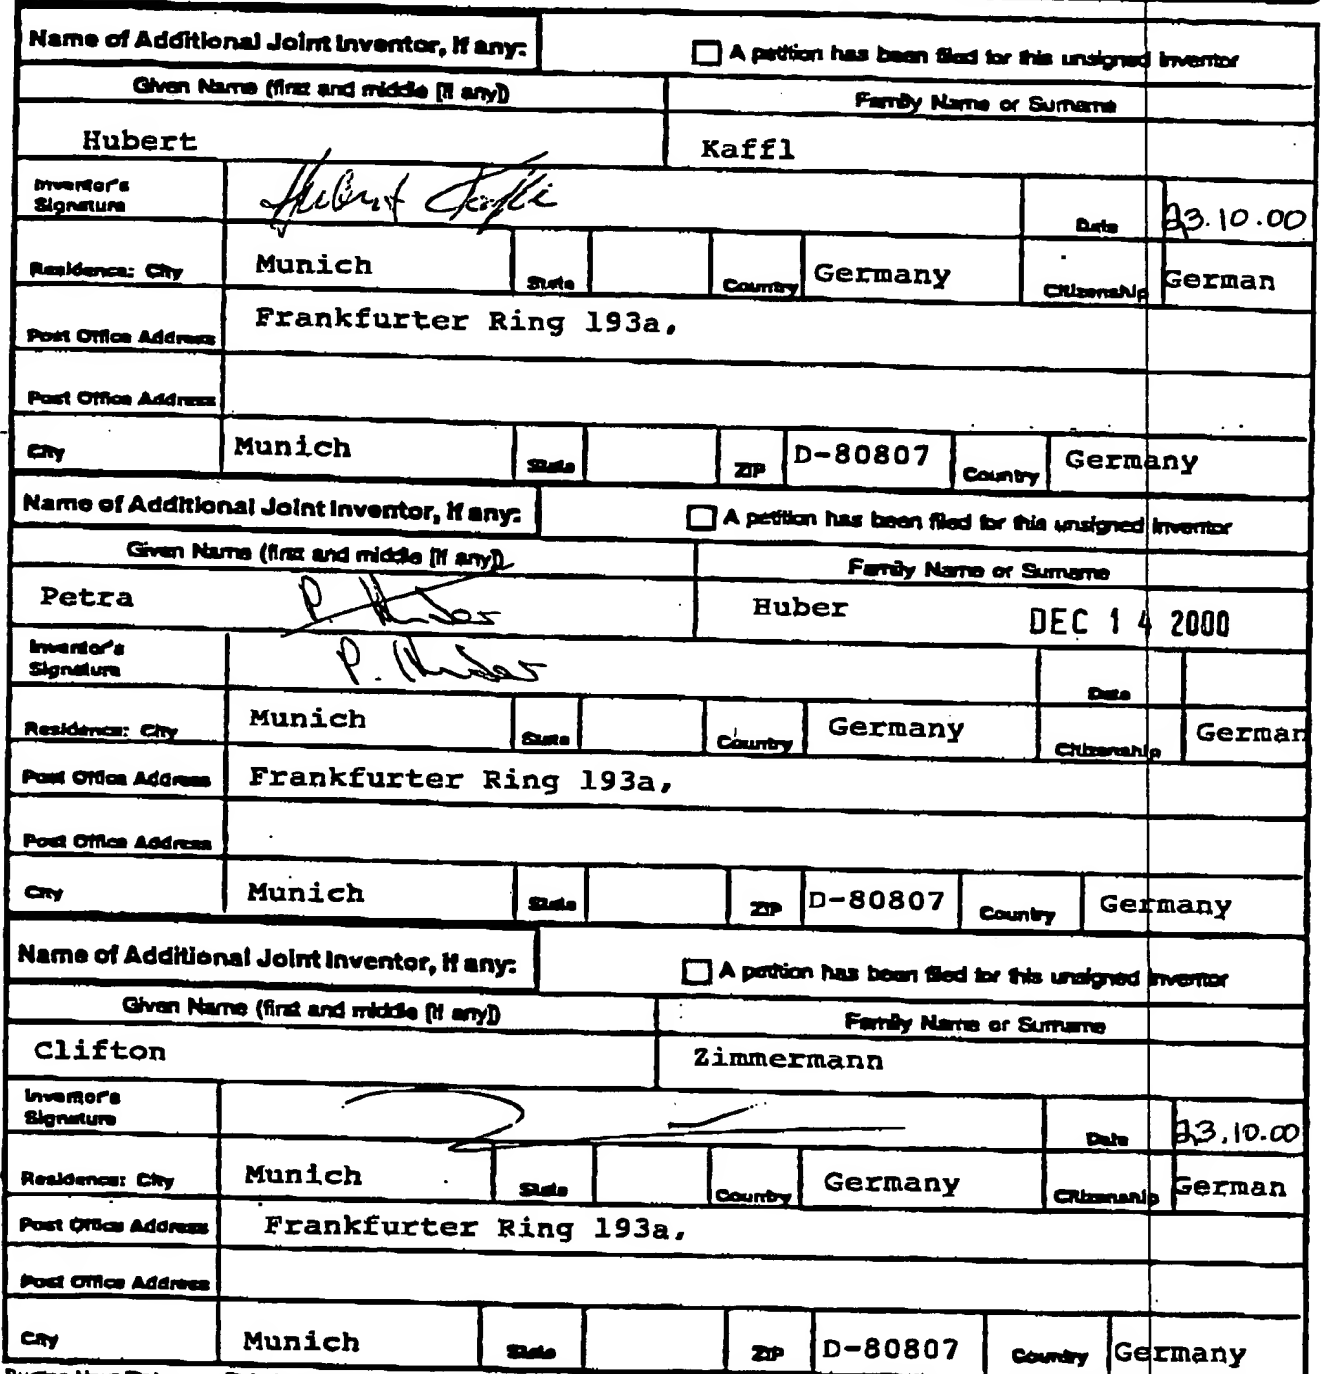 Name of Additional Joint Inventor, if any:
A petition has been filed for this unsigned inventor
Given Name (first and middle [if any])
Family Name or Surname
Hubert
Kaffl
Inventor's Signature
Hubert Kaffl
Date
23.10.00
Residence: City
Munich
State
Country
Germany
Citizenship
German
Post Office Address
Frankfurter Ring 193a,
Post Office Address
City
Munich
State
ZIP
D-80807
Country
Germany
Name of Additional Joint Inventor, if any:
A petition has been filed for this unsigned inventor
Given Name (first and middle [if any])
Family Name or Surname
Petra
P. Huber
Huber
DEC 14 2000
Inventor's Signature
P. Huber
Date
Residence: City
Munich
State
Country
Germany
Citizenship
German
Post Office Address
Frankfurter Ring 193a,
Post Office Address
City
Munich
State
ZIP
D-80807
Country
Germany
Name of Additional Joint Inventor, if any:
A petition has been filed for this unsigned inventor
Given Name (first and middle [if any])
Family Name or Surname
Clifton
Zimmermann
Inventor's Signature
Date
23.10.00
Residence: City
Munich
State
Country
Germany
Citizenship
German
Post Office Address
Frankfurter Ring 193a,
Post Office Address
City
Munich
State
ZIP
D-80807
Country
Germany